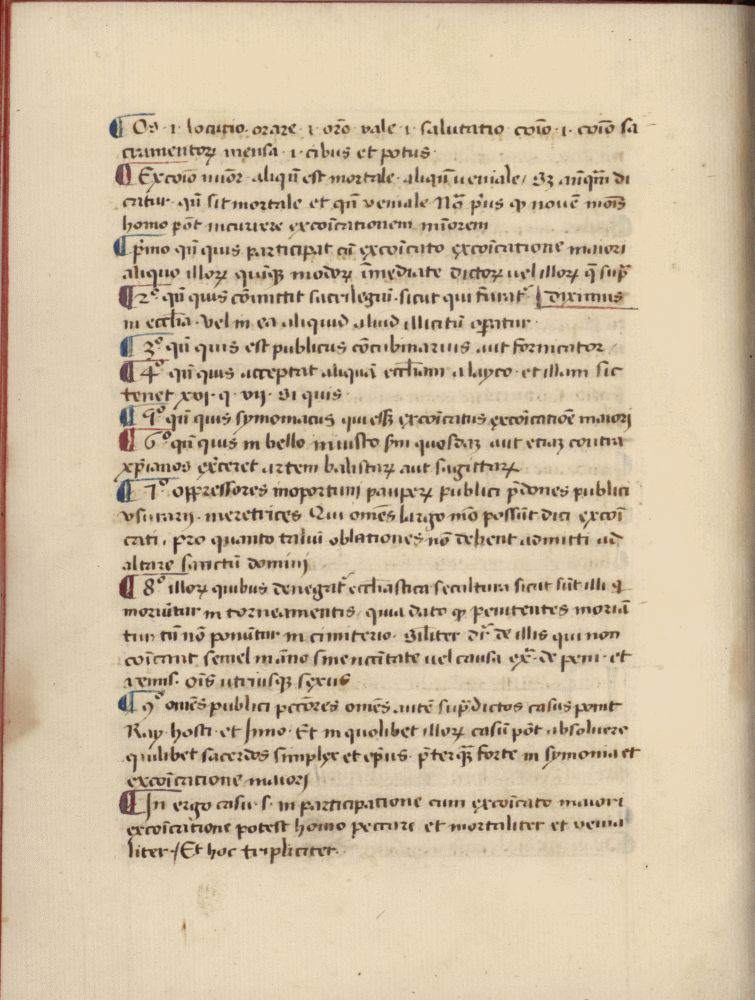 ¶ Os · i · locutio · orare · i · orō vale · i · salutatio cōīo · i · cōīo sa
cramentoꝝ mensa · i · cibus et potus ·
¶ Excōīo mīor · aliqn̄ est mortale · aliqn̄ ueniale / Sꝫ anq̄m di
catur · qn̄ sit mortale et qn̄ veniale Nā pͥus ꝙ nouē mōīs
homo pōt incurrere excōīcationem minorem
¶ pͥmo qn̄ quis participat cū excōīcato excōīcatione maiori
aliquo illoꝝ quīqꝫ modoꝝ īmediate dictoꝝ uel illoꝝ q̄ supͣ
¶ 2º qn̄ quis cōmittit sacrilegiū · sicut qui furatᷓ diximus
in eccl̄ia · vel in ea aliquid aliud illicitū oꝑatur ·
¶ 3º qn̄ quis est publicus cōcubinarius aut fornicator
¶ 4º qn̄ quis acceptat aliquā eccl̄iam a layco · et illam sic
tenet xvi · q · vii · Si quis ·
¶ 5º qn̄ quis symoniacus qui esset excōīcatus excōīcatiōe maiori
¶ 6º qn̄ quis in bello iniusto sm̄ quosdaꝫ aut etiaꝫ contra
xp̄ianos exc̄eret artem balistaꝝ aut sagittaꝝ
¶ 7º oppressores inoportuni pauperꝝ publici p̄dones publici
vsurarii · meretrices Qui omēs largo mō possūt dici excōī
cati · pro quanto taliū oblationes nō debent admitti ad
altare sanctū domini
¶ 8º illoꝝ quibus denegatᷓ eccl̄iastica secultura sicut sūt illi q̄
moriūtur in torneamentis · quia dato ꝙ penitentes moriā
tur tn̄ nō ponūtur in cimiterio · Sīliter dr̄ de illis qui non
cōīcant semel in āno sine necc̄itate uel causa ex̄ · de peni · et
remis · Oīs utriusqꝫ sexus
¶ 9º omēs publici pccōres omēs autē sup̄dictos casus ponit
Ray · hosti · et Inno · Et in quolibet illoꝝ casū pōt absoluere
quilibet sacerdos simplex et ep̄us · p̄terqꝫ forte in symonia et
excōīcatione maiori
¶ In ergo casu · s · in participatione cum excōīcato maiori
excōīcatione potest homo peccare et mortaliter et venia
liter / Et hoc tripliciter ·